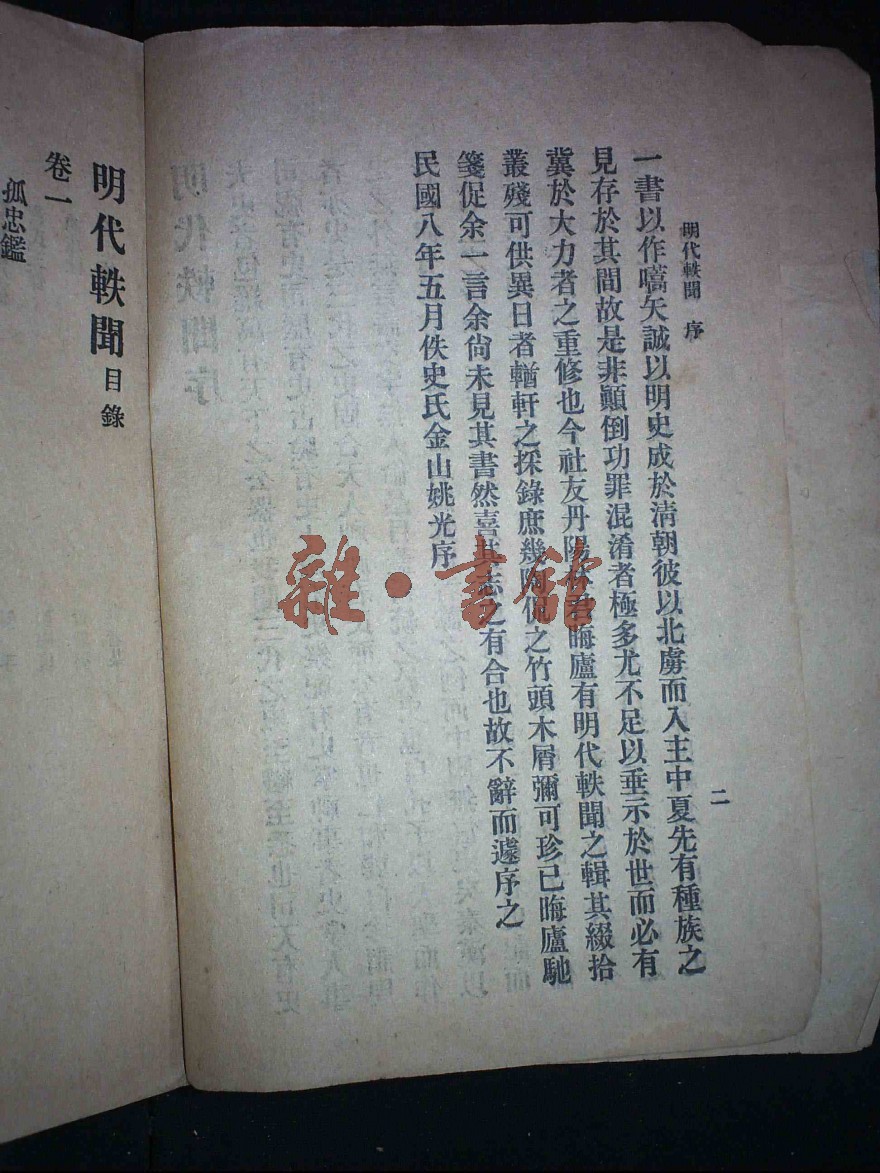 明代軼聞 序
二
一書以作嚆矢誠以明史成於清朝彼以北虜而入主中夏先有種族之
見存於其間故是非顚倒功罪混淆者極多尤不足以垂示於世而必有
冀於大力者之重修也今社友丹陽林君晦廬有明代軼聞之輯其綴拾
叢殘可供異日者輶軒之採錄庶幾陶侃之竹頭木屑彌可珍已晦廬馳
箋促余一言余尙未見其書然喜其志之有合也故不辭而遽序之
民國八年五月佚史氏金山姚光序
明代軼聞目錄
卷一
孤忠鑑
雜·書館